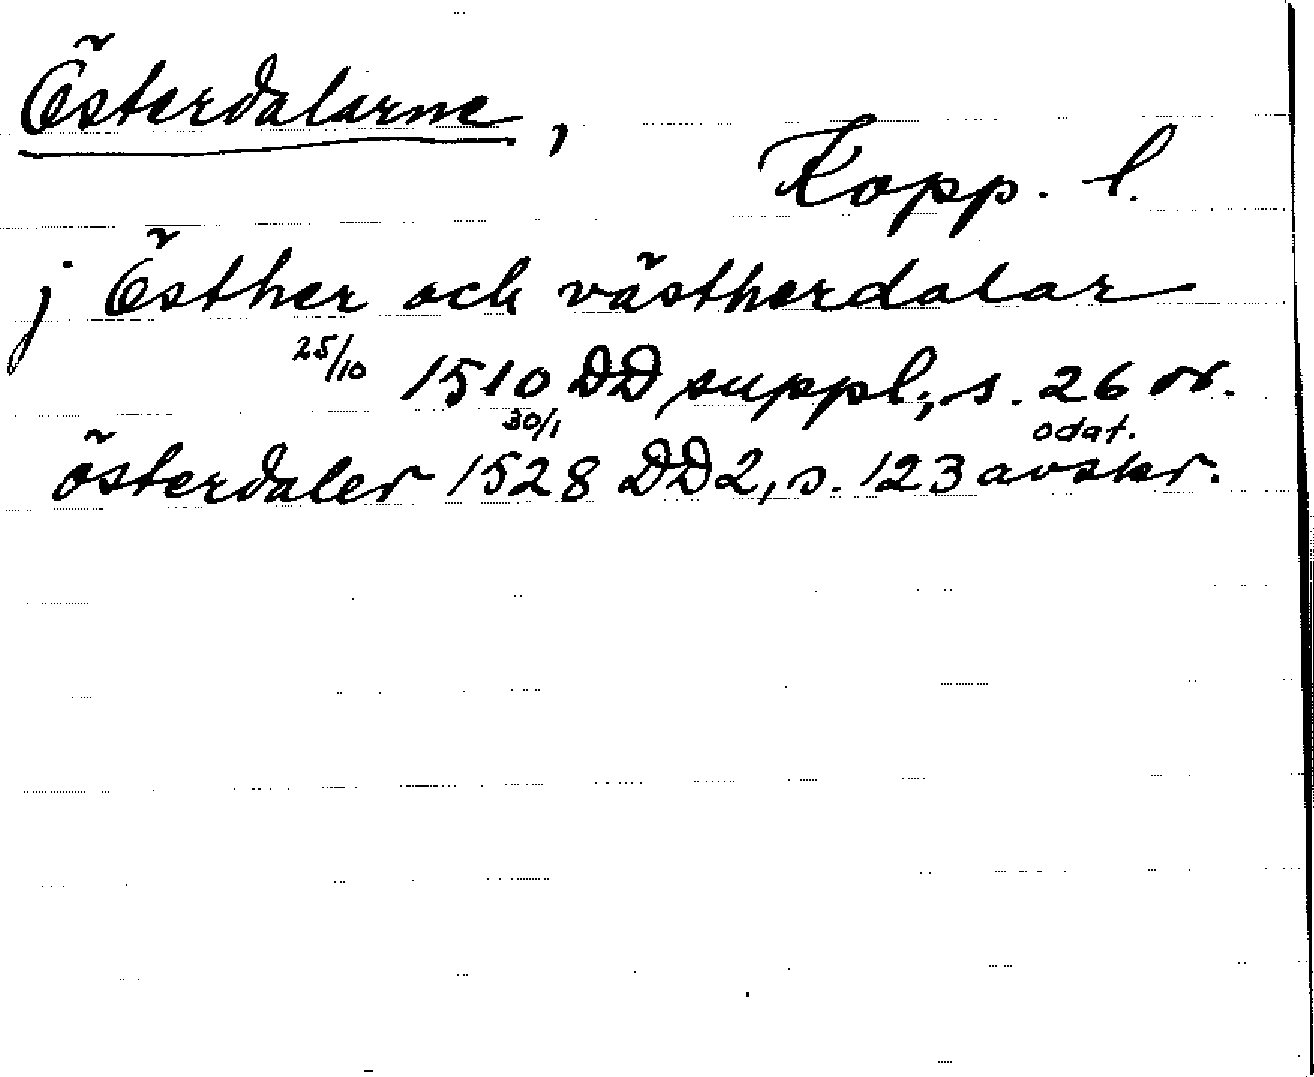 Österdalarne,
Kopp. l.
j Österher och västherdalar
25/10 1510 DD suppl., s. 26 or.
30/1 odat.
österdaler 1528 DD2, s. 123 avskr.